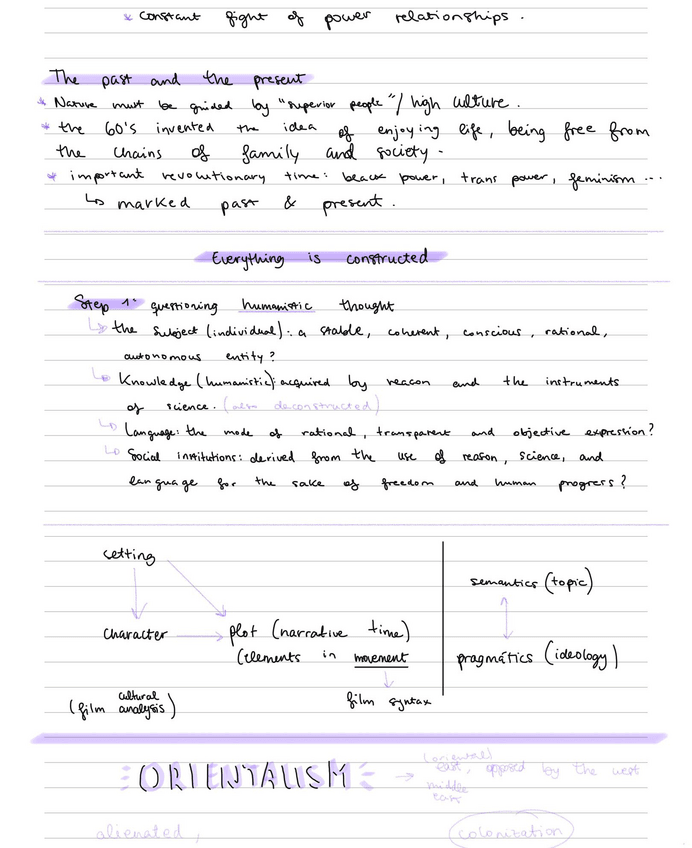 * constant fight of power relationships.
The past and the present
* Nature must be guided by "superior people"/ high culture.
* the 60's invented the idea of enjoying life, being free from
the chains of family and society.
* important revolutionary time: black power, trans power, feminism...
↳ marked past & present.
Everything is constructed
Step 1: questioning humanistic thought
↳ the subject (individual): a stable, coherent, conscious, rational,
autonomous entity?
↳ Knowledge (humanistic): acquired by reason and the instruments
of science. (also deconstructed)
↳ Language: the mode of rational, transparent and objective expression?
↳ Social institutions: derived from the use of reason, science, and
language for the sake of freedom and human progress?
setting
semantics (topic)
character → plot (narrative time)
(elements in movement
pragmátics (ideology)
film syntax
(film cultural analysis)
ORIENTALISM → (oriental)
east, opposed by the west
middle
east
alienated,
colonization